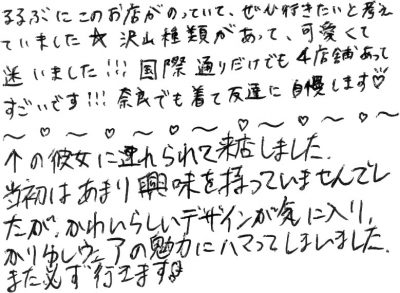 るるぶにこのお店がのっていて、ぜひ行きたいと考え
ていました☆ 沢山種類があって、可愛くて
迷いました!!! 国際通りだけでも4店舗あって
すごいです!!! 奈良でも着て友達に自慢します♡
～♡～♡～♡～♡～♡～♡～
↑の彼女に連れられて来店しました.
当初はあまり興味を持っていませんでし
たが、かわいらしいデザインが気に入り、
かりゆしウェアの魅力にハマってしまいました.
また必ず行きます♪